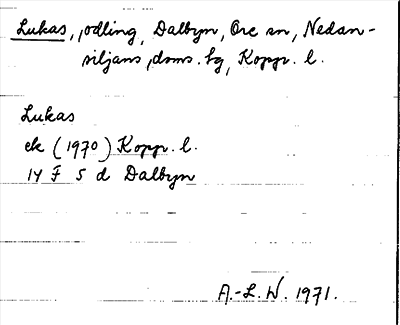 Lukas, odling, Dalbyn, Ore sn, Nedan-
siljans doms. sg, Kopp. l.
Lukas
ek (1970) Kopp. l.
14 F 5 d Dalbyn
A.-L. W. 1971.